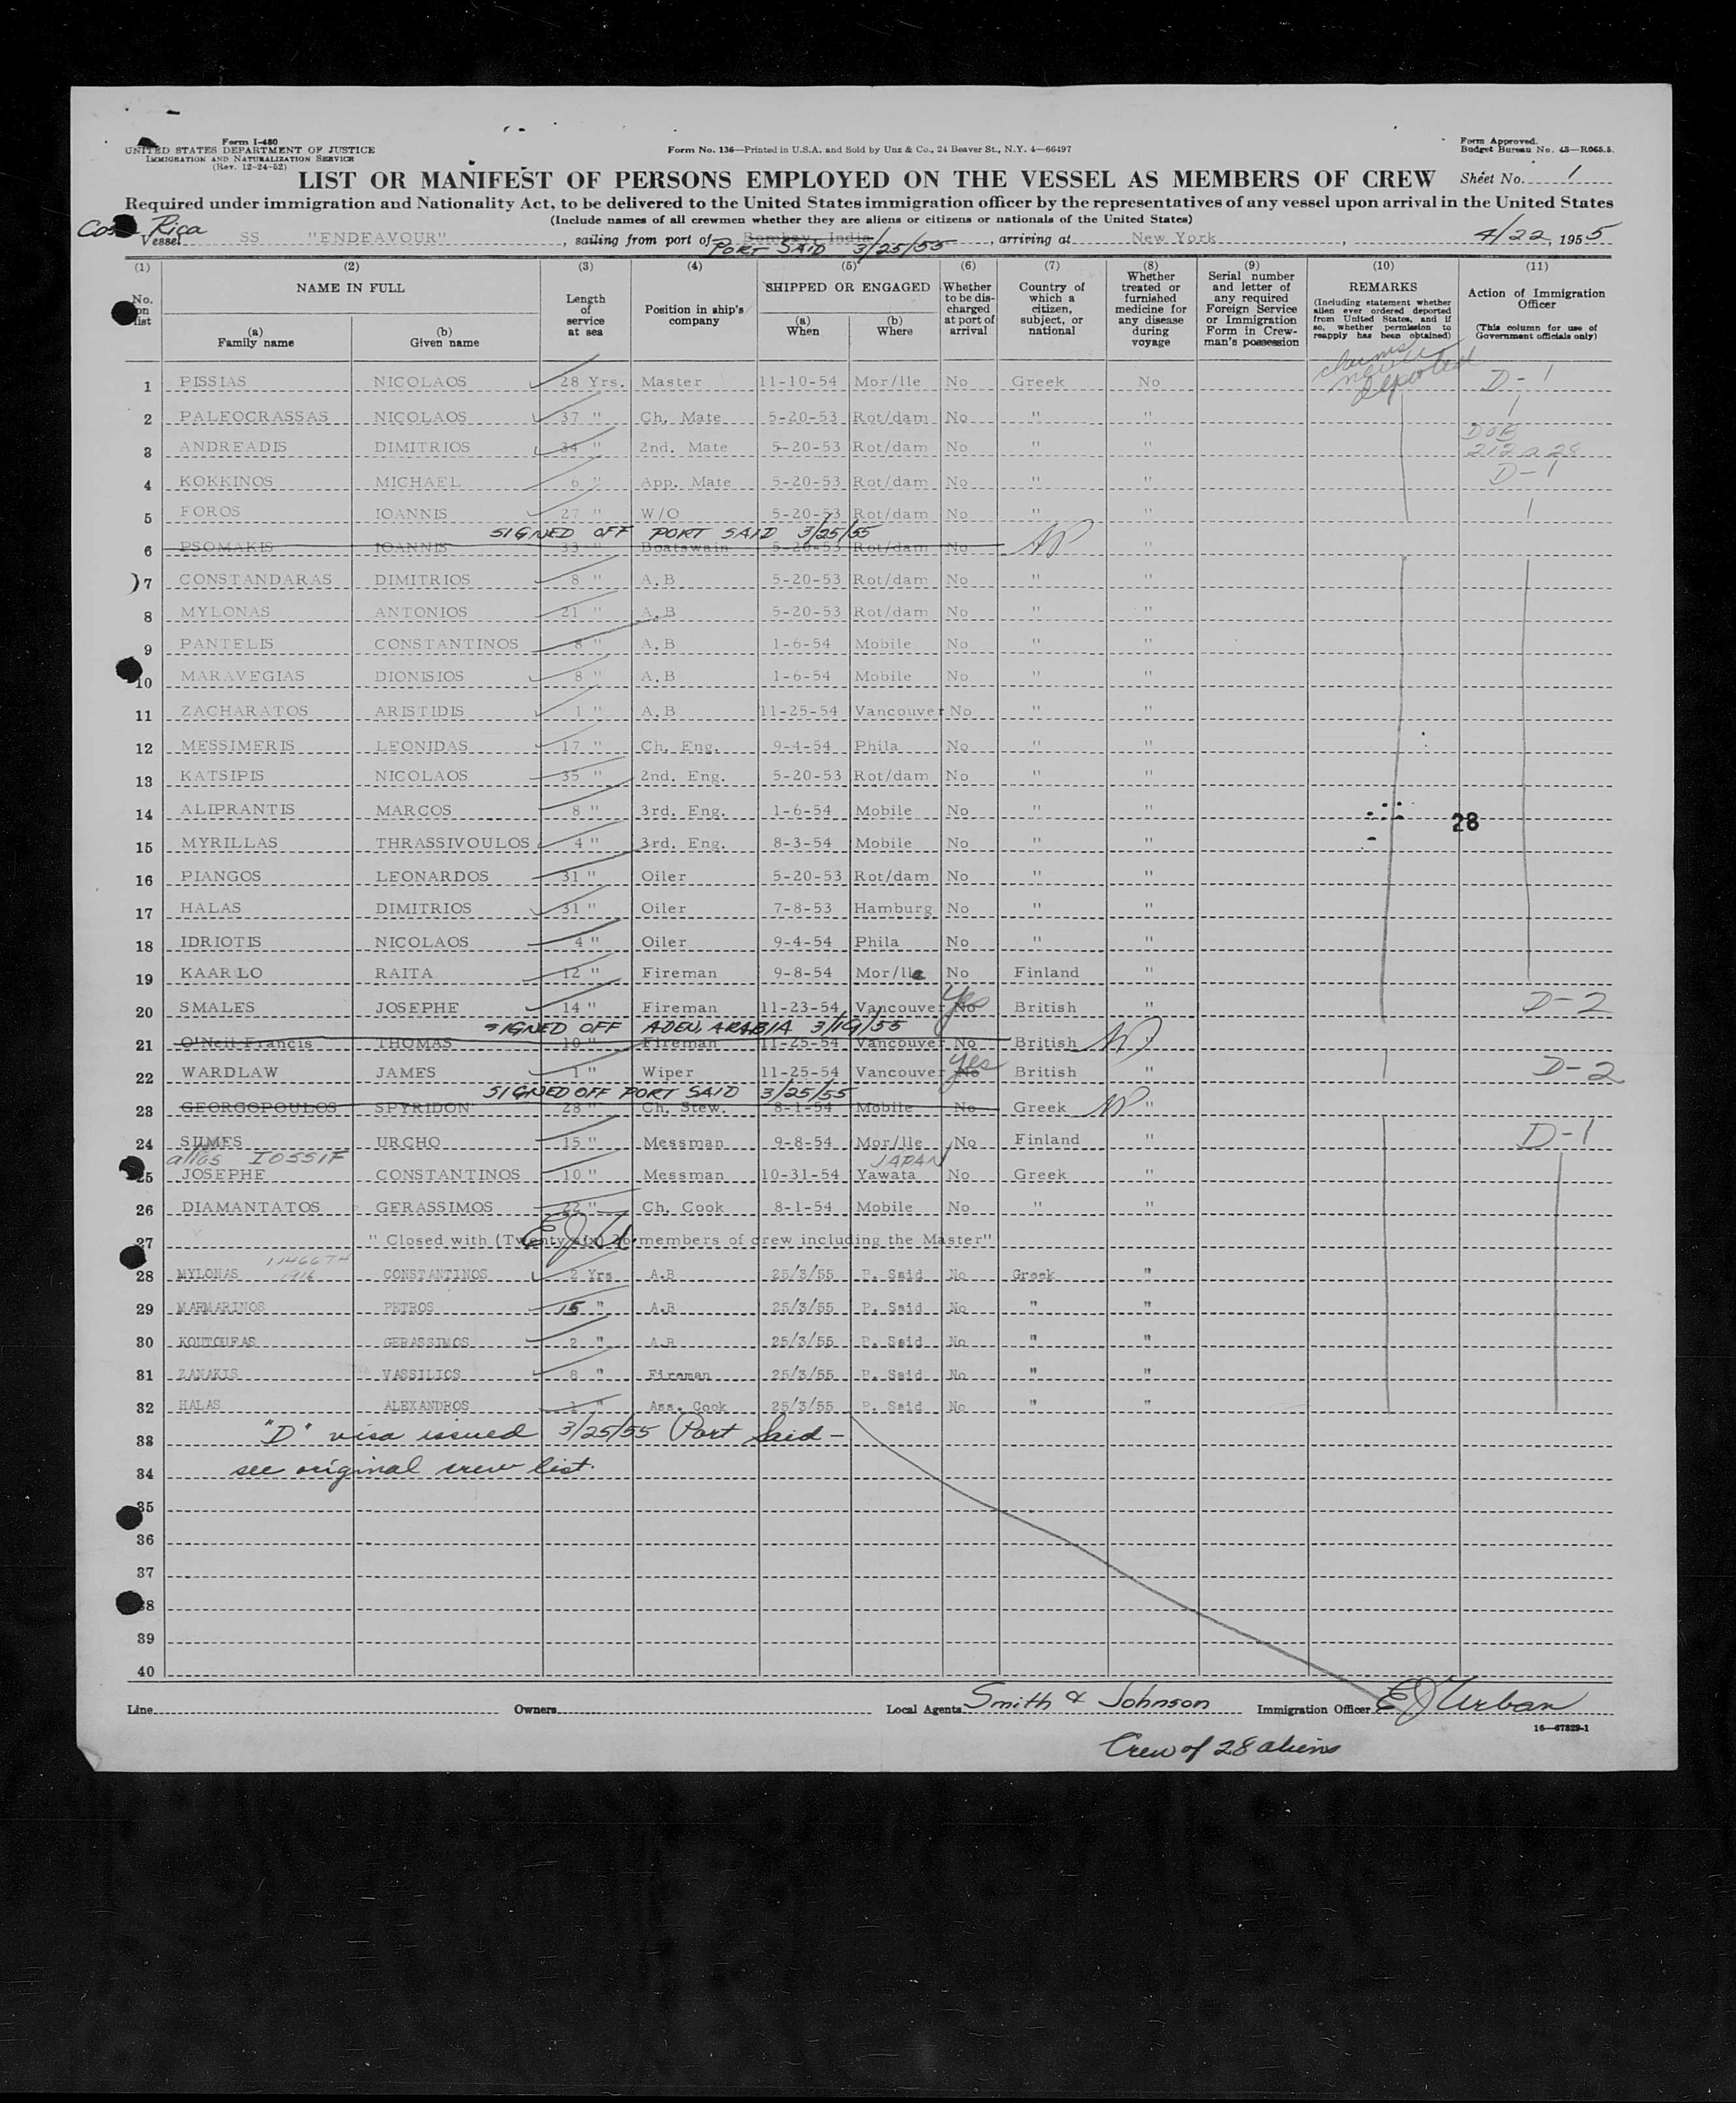 Form I-480
UNITED STATES DEPARTMENT OF JUSTICE
IMMIGRATION AND NATURALIZATION SERVICE
(Rev. 12-24-52)
Form No. 136—Printed in U.S.A. and Sold by Unz & Co., 24 Beaver St., N.Y. 4—66497
Form Approved.
Budget Bureau No. 43—R065.5.
LIST OR MANIFEST OF PERSONS EMPLOYED ON THE VESSEL AS MEMBERS OF CREW Sheet No. 1
Required under immigration and Nationality Act, to be delivered to the United States immigration officer by the representatives of any vessel upon arrival in the United States
(Include names of all crewmen whether they are aliens or citizens or nationals of the United States)
Costa Rica
Vessel SS "ENDEAVOUR", sailing from port of Bombay, India, arriving at New York, 4/22, 1955
PORT SAID 3/25/55
(1) (2) (3) (4) (5) (6) (7) (8) (9) (10) (11)
No. on list
NAME IN FULL
(a) Family name
(b) Given name
Length of service at sea
Position in ship's company
SHIPPED OR ENGAGED
(a) When
(b) Where
Whether to be discharged at port of arrival
Country of which a citizen, subject, or national
Whether treated or furnished medicine for any disease during voyage
Serial number and letter of any required Foreign Service or Immigration Form in Crewman's possession
REMARKS
(Including statement whether alien ever ordered deported from United States, and if so, whether permission to reapply has been obtained)
Action of Immigration Officer
(This column for use of Government officials only)
claims never deported
1 PISSIAS NICOLAOS 28 Yrs. Master 11-10-54 Mor/lle No Greek No D-1
2 PALEOCRASSAS NICOLAOS 37 " Ch. Mate 5-20-53 Rot/dam No " " 1
3 ANDREADIS DIMITRIOS 34 " 2nd. Mate 5-20-53 Rot/dam No " " DOB 212a28
4 KOKKINOS MICHAEL 6 " App. Mate 5-20-53 Rot/dam No " " D-1
5 FOROS IOANNIS 27 " W/O 5-20-53 Rot/dam No " " 1
SIGNED OFF PORT SAID 3/25/55
6 PSOMAKIS IOANNIS 33 " Boatswain 5-20-53 Rot/dam No "
7 CONSTANDARAS DIMITRIOS 8 " A.B 5-20-53 Rot/dam No " "
8 MYLONAS ANTONIOS 21 " A.B 5-20-53 Rot/dam No " "
9 PANTELIS CONSTANTINOS 8 " A.B 1-6-54 Mobile No " "
10 MARAVEGIAS DIONISIOS 8 " A.B 1-6-54 Mobile No " "
11 ZACHARATOS ARISTIDIS 1 " A.B 11-25-54 Vancouver No " "
12 MESSIMERIS LEONIDAS 17 " Ch. Eng. 9-4-54 Phila No " "
13 KATSIPIS NICOLAOS 35 " 2nd. Eng. 5-20-53 Rot/dam No " "
14 ALIPRANTIS MARCOS 8 " 3rd. Eng. 1-6-54 Mobile No " "
28
15 MYRILLAS THRASSIVOULOS 4 " 3rd. Eng. 8-3-54 Mobile No " "
16 PIANGOS LEONARDOS 31 " Oiler 5-20-53 Rot/dam No " "
17 HALAS DIMITRIOS 31 " Oiler 7-8-53 Hamburg No " "
18 IDRIOTIS NICOLAOS 4 " Oiler 9-4-54 Phila No " "
19 KAARLO RAITA 12 " Fireman 9-8-54 Mor/lle No Finland "
20 SMALES JOSEPHE 14 " Fireman 11-23-54 Vancouver No Yes British " D-2
SIGNED OFF ADEN, ARABIA 3/19/55
21 O'Neil Francis THOMAS 10 " Fireman 11-25-54 Vancouver No British "
22 WARDLAW JAMES 1 " Wiper 11-25-54 Vancouver No Yes British " D-2
SIGNED OFF PORT SAID 3/25/55
23 GEORGOPOULOS SPYRIDON 28 " Ch. Stew. 8-1-54 Mobile No Greek "
24 SIIMES URCHO 15 " Messman 9-8-54 Mor/lle No Finland " D-1
alias IOSSIF JAPAN
25 JOSEPHE CONSTANTINOS 10 " Messman 10-31-54 Yawata No Greek "
26 DIAMANTATOS GERASSIMOS 22 " Ch. Cook 8-1-54 Mobile No " "
27 " Closed with (Twenty six) 26 members of crew including the Master"
EJU
1916
28 MYLONAS CONSTANTINOS 2 Yrs A.B 25/3/55 P. Said No Greek "
29 MARMARINOS PETROS 15 " A.B 25/3/55 P. Said No " "
30 KOUTOUFAS GERASSIMOS 2 " A.B 25/3/55 P. Said No " "
31 ZANAKIS VASSILIOS 8 " Fireman 25/3/55 P. Said No " "
32 HALAS ALEXANDROS 1 " Ass. Cook 25/3/55 P. Said No " "
33 "D" visa issued 3/25/55 Port Said—
34 see original crew list.
35
36
37
38
39
40
Line Owners Local Agents Smith & Johnson Immigration Officer EJ Urban
16—67829-1
Crew of 28 aliens